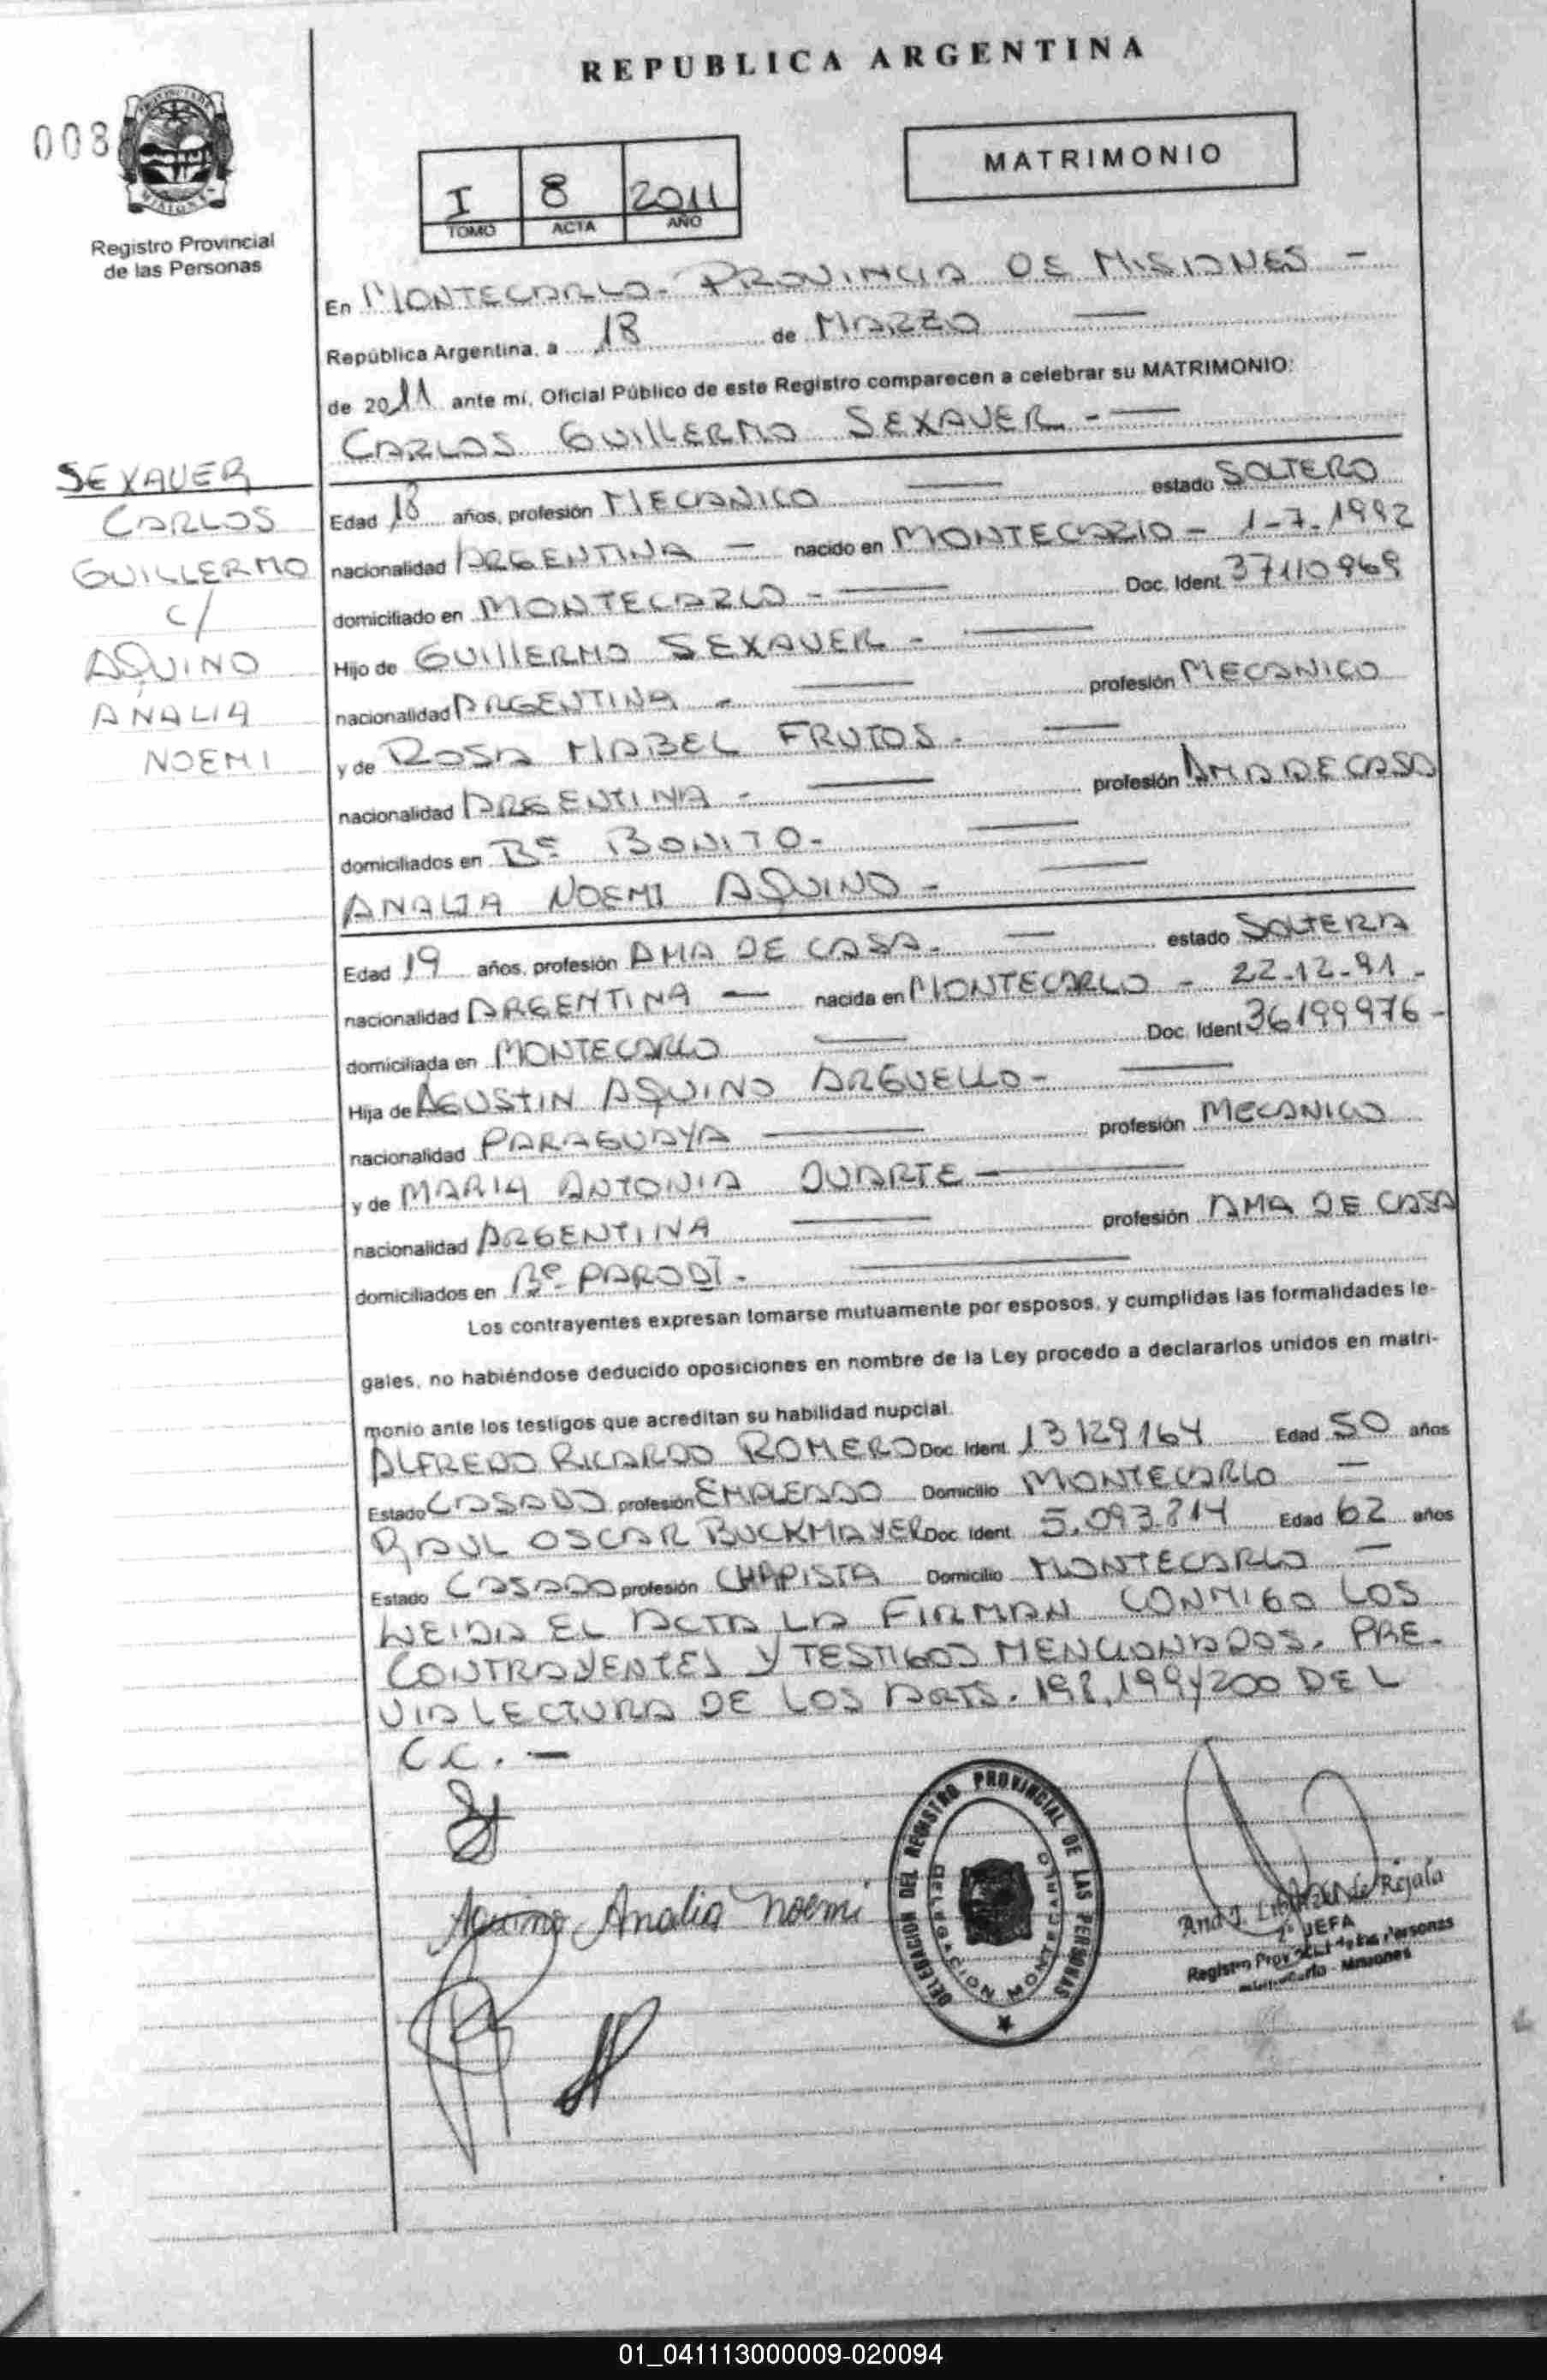 REPUBLICA ARGENTINA
008
PROVINCIA DE
MISIONES
Registro Provincial
de las Personas
I 8 2011
TOMO ACTA AÑO
MATRIMONIO
En MONTECARLO - PROVINCIA DE MISIONES -
República Argentina, a 18 de MARZO
de 2011 ante mí, Oficial Público de este Registro comparecen a celebrar su MATRIMONIO:
CARLOS GUILLERMO SEXAUER -
SEXAUER
CARLOS
GUILLERMO
c/
AQUINO
ANALIA
NOEMI
Edad 18 años, profesión MECANICO estado SOLTERO
nacionalidad ARGENTINA - nacido en MONTECARLO - 1-7-1992
domiciliado en MONTECARLO - Doc. Ident. 37110969
Hijo de GUILLERMO SEXAUER -
nacionalidad ARGENTINA - profesión MECANICO
y de ROSA MABEL FRUTOS -
nacionalidad ARGENTINA - profesión AMA DE CASA
domiciliados en Bº BONITO -
ANALIA NOEMI AQUINO -
Edad 19 años, profesión AMA DE CASA - estado SOLTERA
nacionalidad ARGENTINA - nacida en MONTECARLO - 22-12-91 -
domiciliada en MONTECARLO Doc. Ident 36199976 -
Hija de AGUSTIN AQUINO ARGUELLO -
nacionalidad PARAGUAYA profesión MECANICO
y de MARIA ANTONIA DUARTE -
nacionalidad ARGENTINA profesión AMA DE CASA
domiciliados en Bº PARODI -
Los contrayentes expresan tomarse mutuamente por esposos, y cumplidas las formalidades le-
gales, no habiéndose deducido oposiciones en nombre de la Ley procedo a declararlos unidos en matri-
monio ante los testigos que acreditan su habilidad nupcial.
ALFREDO RICARDO ROMERO Doc. Ident. 13129164 Edad 50 años
Estado CASADO profesión EMPLEADO Domicilio MONTECARLO -
RAUL OSCAR BUCKMAYER Doc. Ident. 5.093.814 Edad 62 años
Estado CASADO profesión CHAPISTA Domicilio MONTECARLO -
LEIDA EL ACTA LA FIRMAN CONMIGO LOS
CONTRAYENTES Y TESTIGOS MENCIONADOS. PRE-
VIA LECTURA DE LOS ARTS. 198, 199 y 200 DEL
C.C. -
Aquino Analia Noemi
DELEGACION DEL REGISTRO PROVINCIAL DE LAS PERSONAS
DELEGACION MONTECARLO
de Rejala
JEFA
Registro Provincial de las Personas
Montecarlo - Misiones
01_041113000009-020094